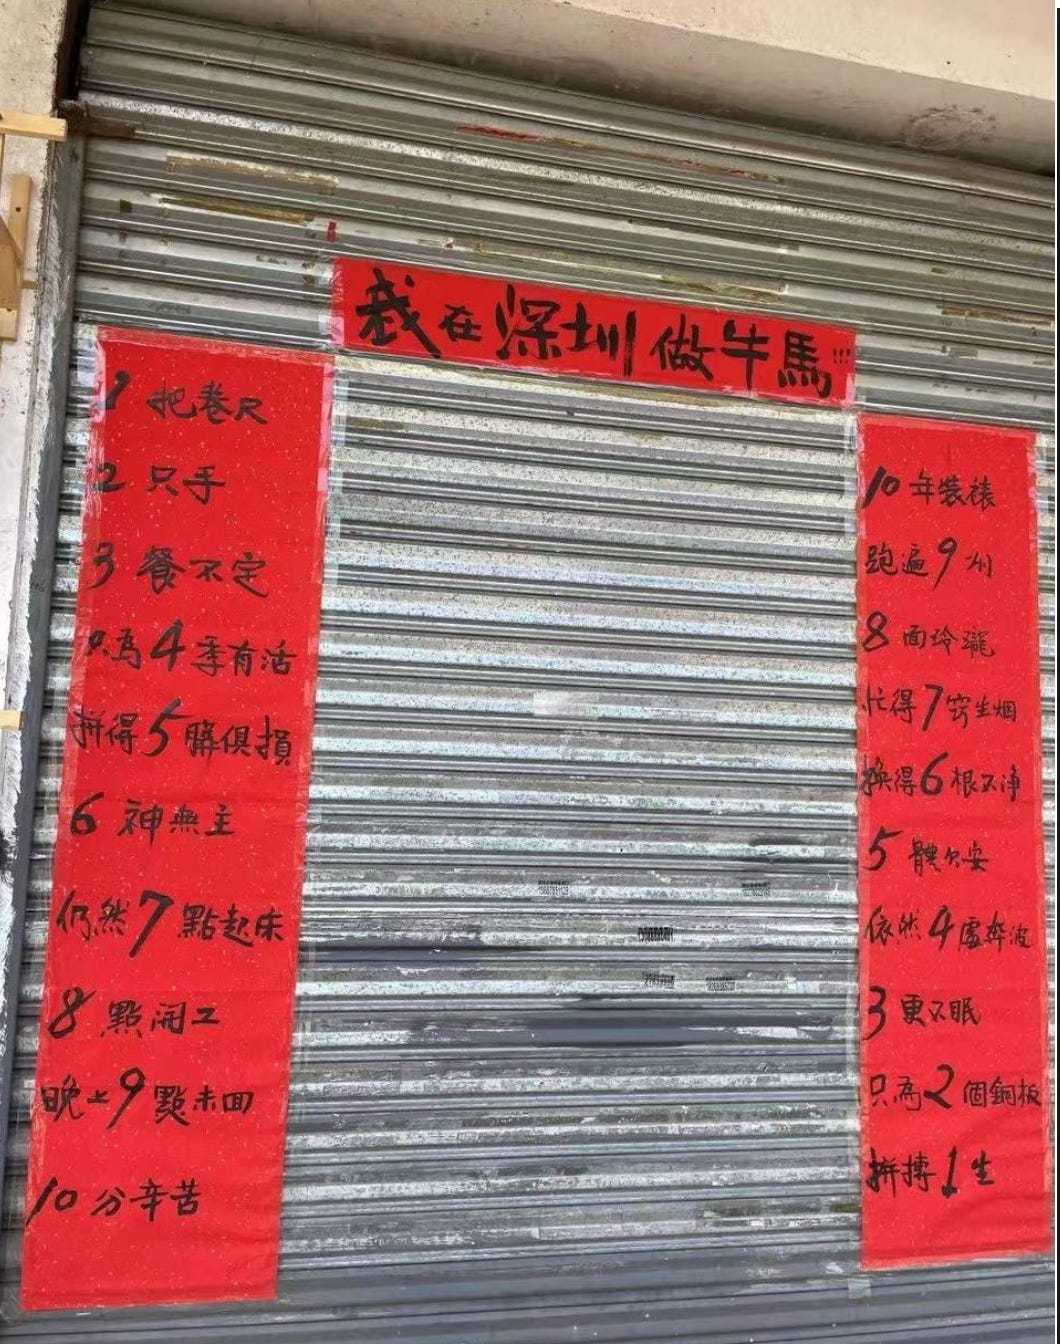 我在深圳做牛馬!!!
1把卷尺
2只手
3餐不定
只為4季有活
拼得5臟俱損
6神無主
仍然7點起床
8點開工
晚上9點未回
10分辛苦
10年装裱
跑遍9州
8面玲瓏
忙得7窍生烟
换得6根不净
5體欠安
依然4處奔波
3更不眠
只為2個銅板
拼搏1生